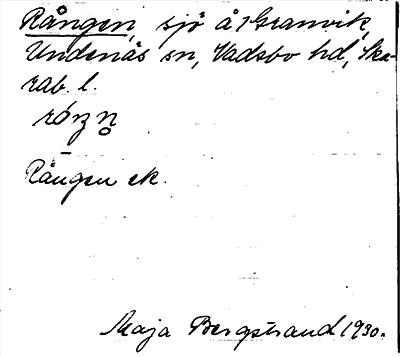 Rången, sjö å 1 Granvik,
Undenäs sn, Vadsbo hd, Ska-
rab. l.
Rången ek.
Maja Bergstrand 1930.